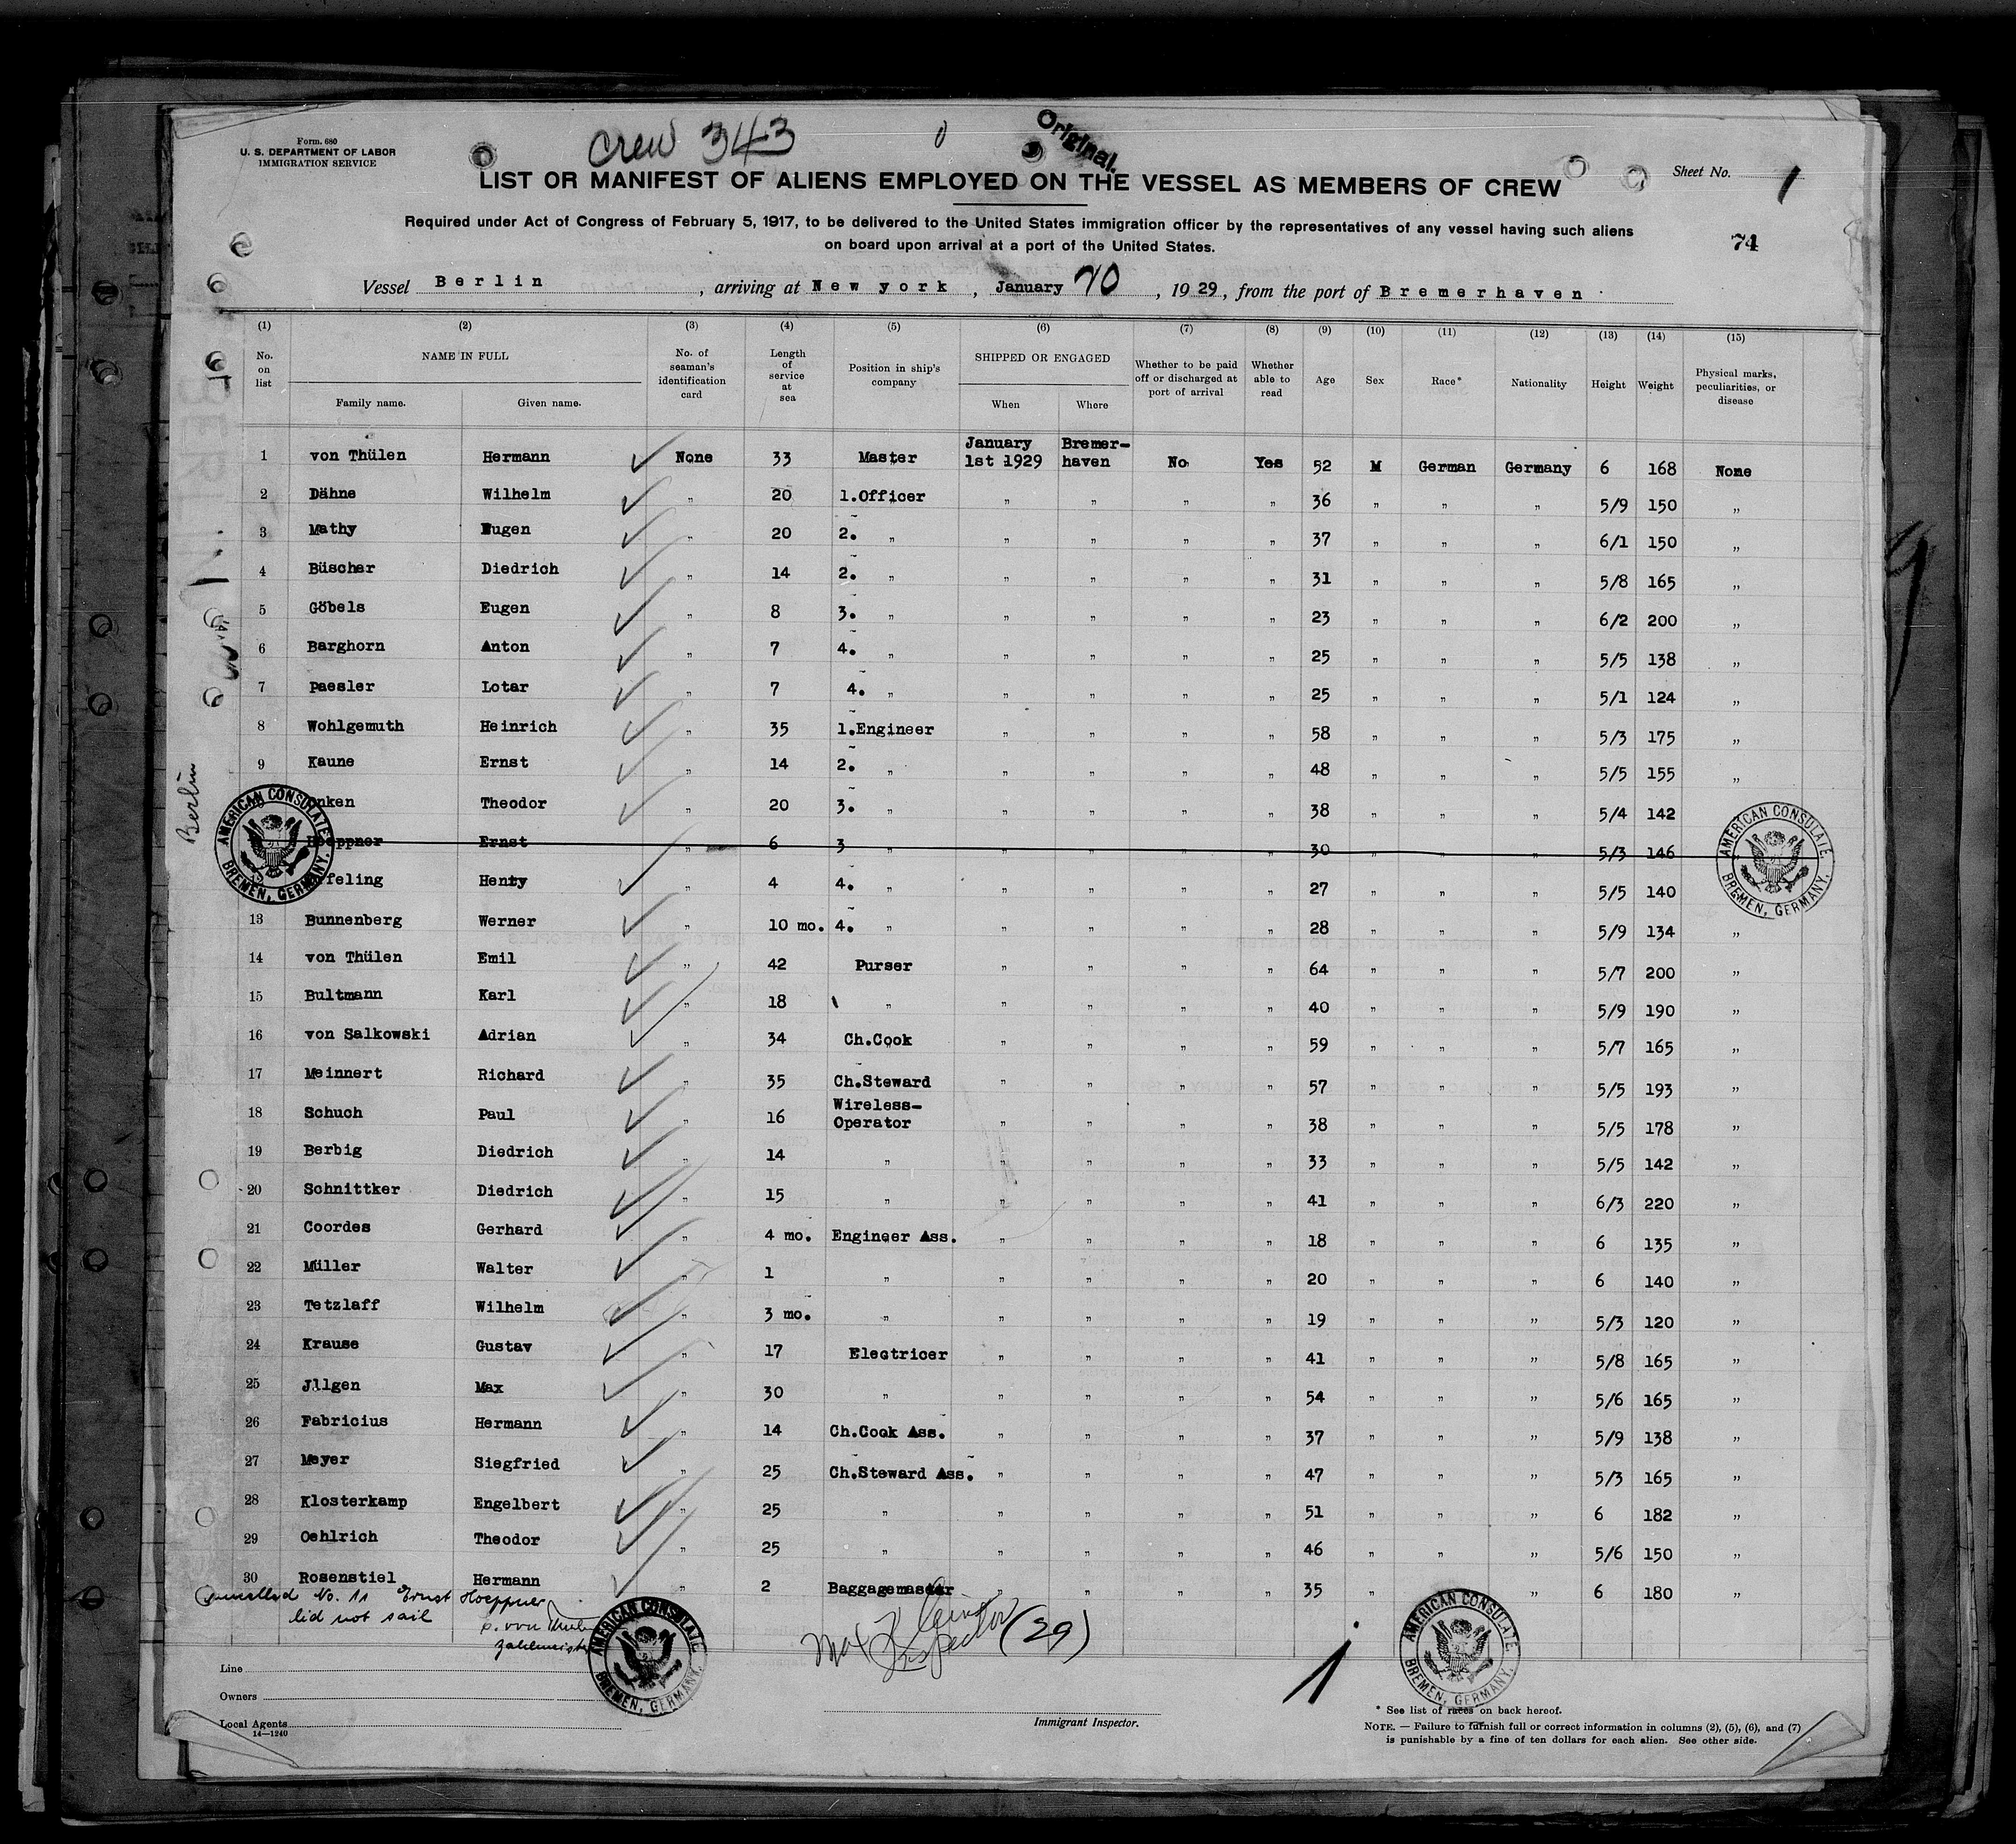 Form. 680
U. S. DEPARTMENT OF LABOR
IMMIGRATION SERVICE
Crew 343
Original.
Sheet No. 1
LIST OR MANIFEST OF ALIENS EMPLOYED ON THE VESSEL AS MEMBERS OF CREW
Required under Act of Congress of February 5, 1917, to be delivered to the United States immigration officer by the representatives of any vessel having such aliens
on board upon arrival at a port of the United States.
74
Vessel Berlin, arriving at New york, January 20, 1929, from the port of Bremerhaven
(1) (2) (3) (4) (5) (6) (7) (8) (9) (10) (11) (12) (13) (14) (15)
No. on list NAME IN FULL Family name. Given name. No. of seaman's identification card Length of service at sea Position in ship's company SHIPPED OR ENGAGED When Where Whether to be paid off or discharged at port of arrival Whether able to read Age Sex Race* Nationality Height Weight Physical marks, peculiarities, or disease
1 von Thülen Hermann None 33 Master January 1st 1929 Bremer-haven No Yes 52 M German Germany 6 168 None
2 Dähne Wilhelm " 20 1.Officer " " " " 36 " " " 5/9 150 "
3 Mathy Eugen " 20 2. " " " " " 37 " " " 6/1 150 "
4 Büscher Diedrich " 14 2. " " " " " 31 " " " 5/8 165 "
5 Göbels Eugen " 8 3. " " " " " 23 " " " 6/2 200 "
6 Barghorn Anton " 7 4. " " " " " 25 " " " 5/5 138 "
7 Paesler Lotar " 7 4. " " " " " 25 " " " 5/1 124 "
8 Wohlgemuth Heinrich " 35 1.Engineer " " " " 58 " " " 5/3 175 "
9 Kaune Ernst " 14 2. " " " " " 48 " " " 5/5 155 "
Theodor " 20 3. " " " " " 38 " " " 5/4 142
Hoeppner Ernst " 6 3 " " " " " 30 " " " 5/3 146
Henty " 4 4. " " " " " 27 " " " 5/5 140
13 Bunnenberg Werner " 10 mo. 4. " " " " " 28 " " " 5/9 134 "
14 von Thülen Emil " 42 Purser " " " " 64 " " " 5/7 200 "
15 Bultmann Karl " 18 " " " " " 40 " " " 5/9 190 "
16 von Salkowski Adrian " 34 Ch.Cook " " " " 59 " " " 5/7 165 "
17 Meinnert Richard " 35 Ch.Steward " " " " 57 " " " 5/5 193 "
18 Schuch Paul " 16 Wireless-Operator " " " " 38 " " " 5/5 178 "
19 Berbig Diedrich " 14 " " " " " 33 " " " 5/5 142 "
20 Schnittker Diedrich " 15 " " " " " 41 " " " 6/3 220 "
21 Coordes Gerhard " 4 mo. Engineer Ass. " " " " 18 " " " 6 135 "
22 Müller Walter " 1 " " " " " 20 " " " 6 140 "
23 Tetzlaff Wilhelm " 3 mo. " " " " " 19 " " " 5/3 120 "
24 Krause Gustav " 17 Electricer " " " " 41 " " " 5/8 165 "
25 Jllgen Max " 30 " " " " " 54 " " " 5/6 165 "
26 Fabricius Hermann " 14 Ch.Cook Ass. " " " " 37 " " " 5/9 138 "
27 Meyer Siegfried " 25 Ch.Steward Ass. " " " " 47 " " " 5/3 165 "
28 Klosterkamp Engelbert " 25 " " " " " 51 " " " 6 182 "
29 Oehlrich Theodor " 25 " " " " " 46 " " " 5/6 150 "
30 Rosenstiel Hermann " 2 Baggagemaster " " " " 35 " " 6 180 "
No. 11 Ernst Hoeppner
did not sail
Inspector (29)
1
AMERICAN CONSULATE
BREMEN, GERMANY.
AMERICAN CONSULATE
BREMEN, GERMANY.
AMERICAN CONSULATE
BREMEN, GERMANY.
AMERICAN CONSULATE
BREMEN, GERMANY.
Berlin
Line
Owners
Local Agents
14—1240
Immigrant Inspector.
* See list of races on back hereof.
NOTE. — Failure to furnish full or correct information in columns (2), (5), (6), and (7)
is punishable by a fine of ten dollars for each alien. See other side.